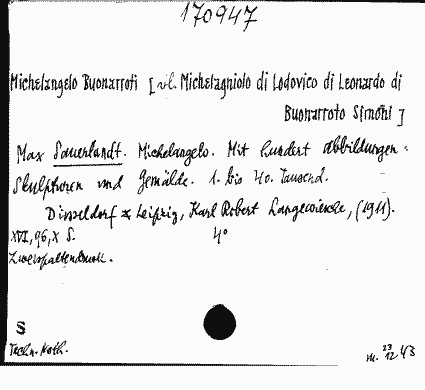 170947
Michelangelo Buonarroti [vl. Michelagniolo di Lodovico di Leonardo di
Buonarroto Simoni]
Max Sauerlandt. Michelangelo. Mit hundert Abbildungen:
Skulpturen und Gemälde. 1. bis 40. Tausend.
Düsseldorf & Leipzig, Karl Robert Langewiesche, (1911).
XVI, 96, X S. 4°
Zweispaltendruck.
S
Techn. Hoch.
23
12 43